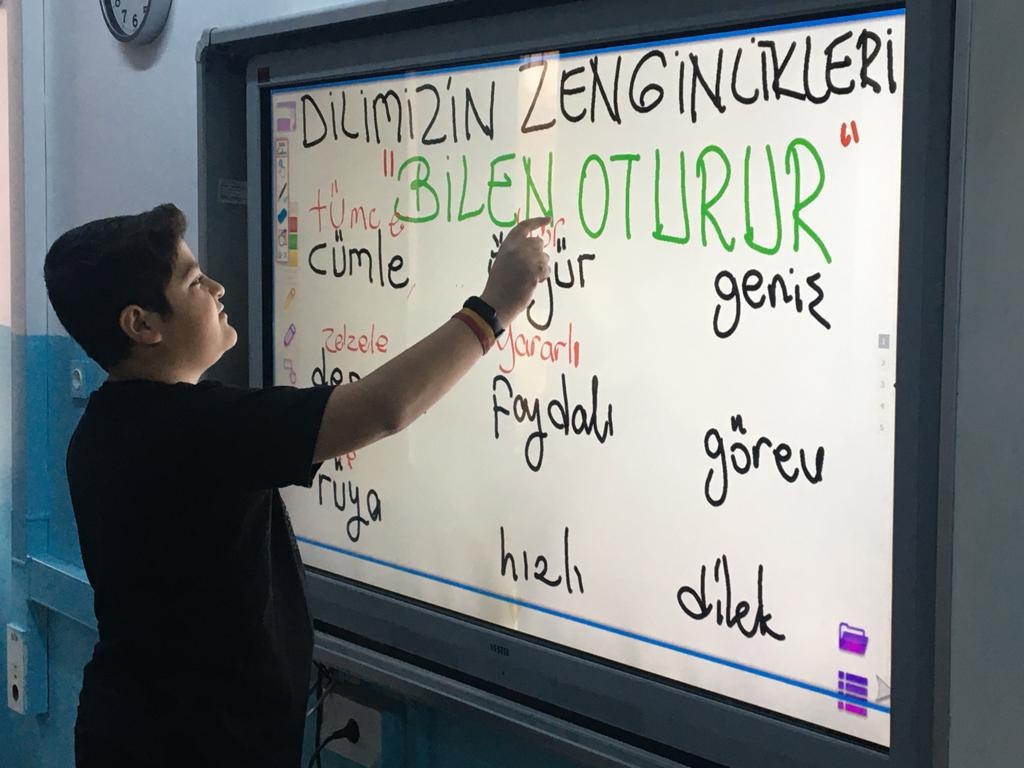 DİLİMİZİN ZENGİNLİKLERİ
"BİLEN OTURUR"
tümce
cümle
geniş
zelzele
yararlı
faydalı
görev
rüya
hızlı
dilek
VESTEL